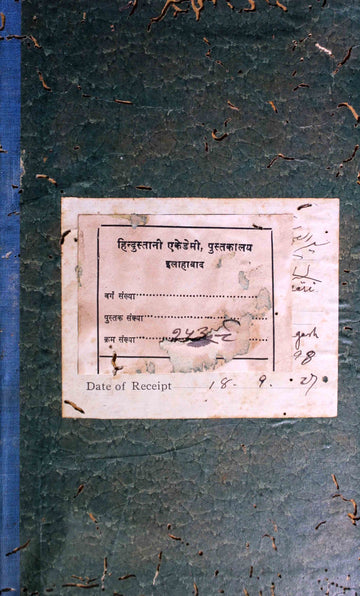 हिन्दुस्तानी एकेडेमी, पुस्तकालय
इलाहाबाद
वर्ग संख्या
पुस्तक संख्या
क्रम संख्या
Date of Receipt 18. 9. 27